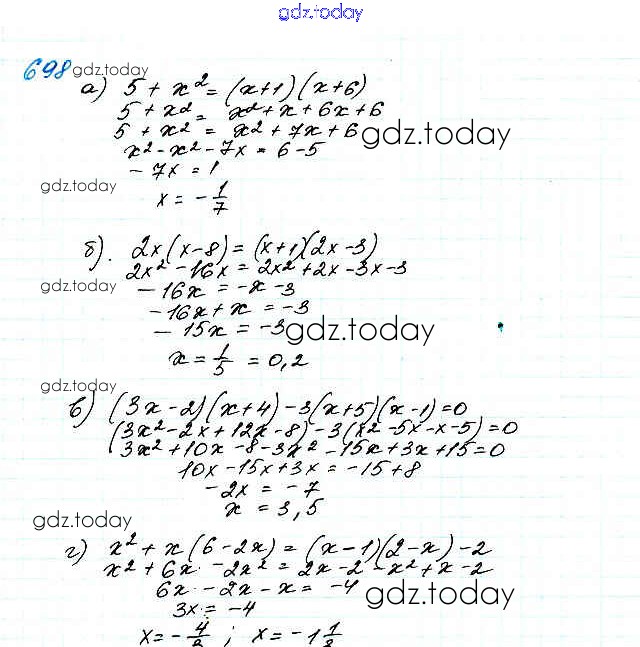 gdz.today
698 gdz.today
а) 5 + x² = (x+1)(x+6)
5 + x² = x² + x + 6x + 6
5 + x² = x² + 7x + 6
gdz.today
x² - x² - 7x = 6 - 5
- 7x = 1
gdz.today
x = - 1/7
б). 2x(x-8) = (x+1)(2x-3)
2x² - 16x = 2x² + 2x - 3x - 3
gdz.today
- 16x = -x - 3
- 16x + x = -3
- 15x = -3
gdz.today
x = 1/5 = 0,2
gdz.today
в) (3x-2)(x+4) - 3(x+5)(x-1) = 0
(3x² - 2x + 12x - 8) - 3(x² - 5x - x - 5) = 0
3x² + 10x - 8 - 3x² - 15x + 3x + 15 = 0
10x - 15x + 3x = -15 + 8
- 2x = - 7
x = 3,5
gdz.today
г) x² + x(6-2x) = (x-1)(2-x) - 2
x² + 6x - 2x² = 2x - 2 - x² + x - 2
6x - 2x - x = -4
gdz.today
3x = -4
x = - 4/3 ; x = - 1 1/3